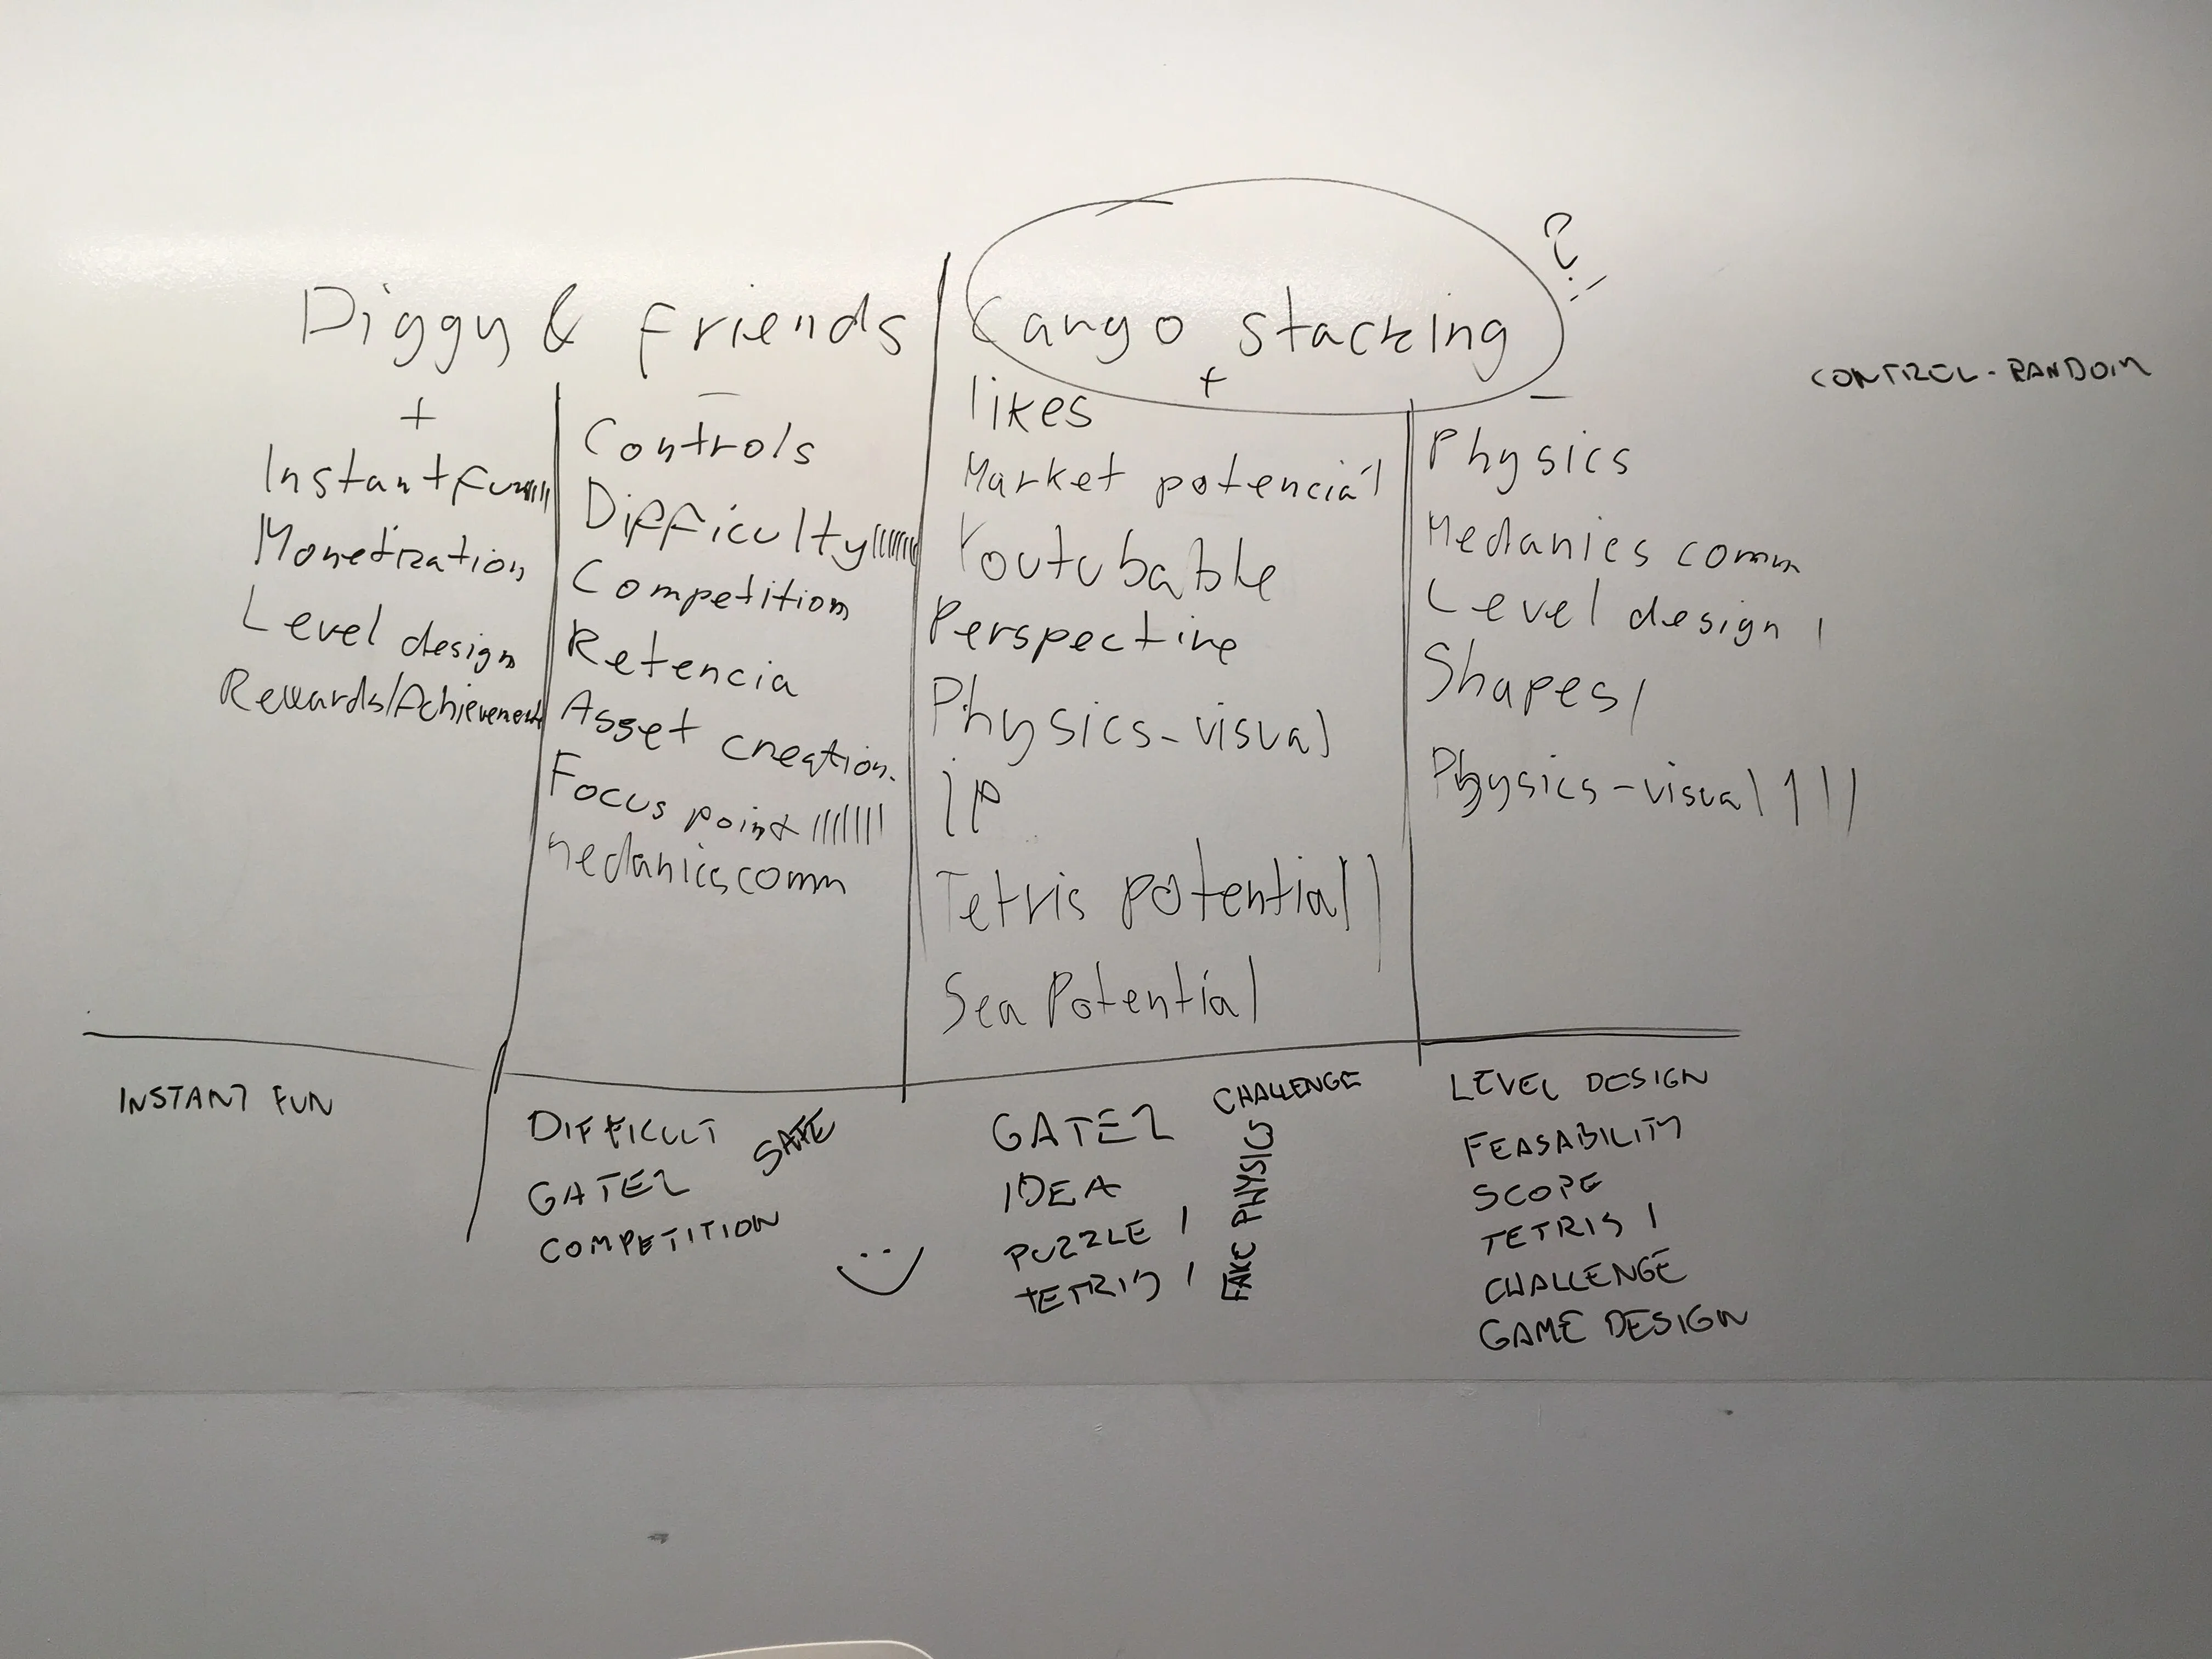 Diggy & friends
+
Instant fun
Monetization
Level design
Rewards/Achievement
-
Controls
Difficulty
Competition
Retencia
Asset creation.
Focus point
medanics comm
Cargo stacking
?!
+
likes
Market potenciál
Youtubable
Perspective
Physics-visual
IP
Tetris potential
Sea Potential
-
Physics
Medanics comm
Level design
Shapes
Physics-visual
CONTROL-RANDOM
INSTANT FUN
DIFFICULT
GATE2
COMPETITION
SAFE
GATE2
IDEA
PUZZLE
TETRIS
CHALLENGE
FAKE PHYSICS
LEVEL DESIGN
FEASABILITY
SCOPE
TETRIS
CHALLENGE
GAME DESIGN